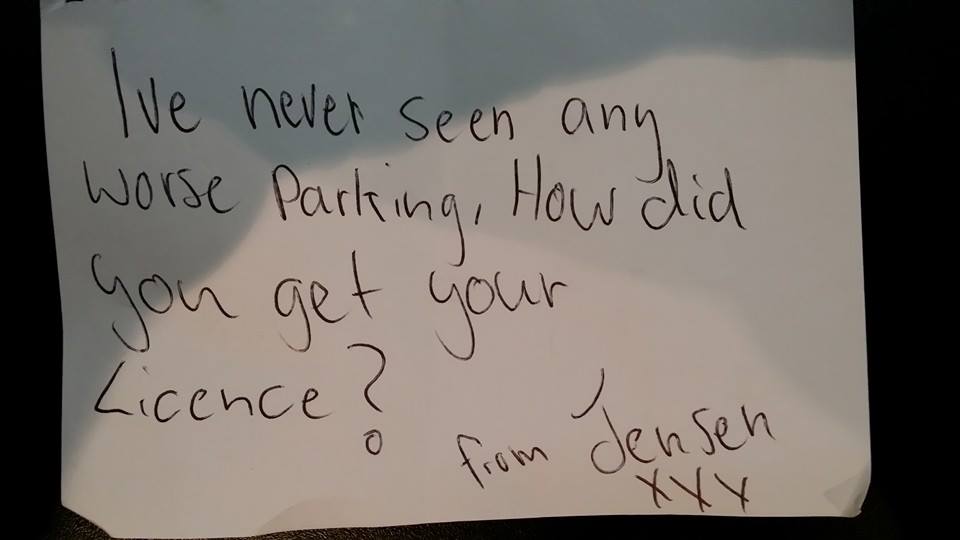 Ive never seen any
worse Parking, How did
you get your
Licence?
from Jensen
xxx